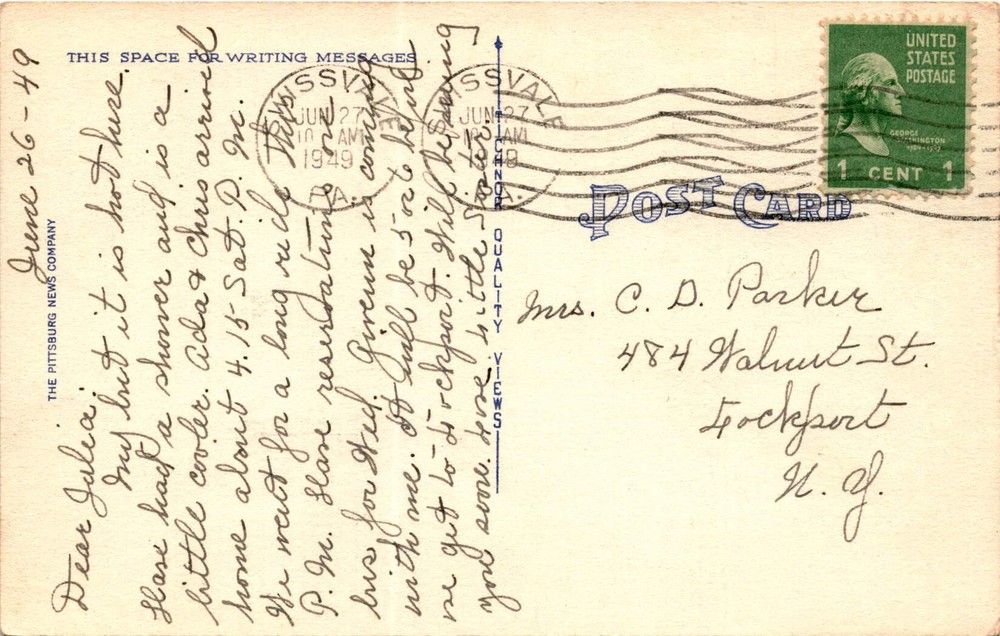 THIS SPACE FOR WRITING MESSAGES
THE PITTSBURG NEWS COMPANY
June 26-49
Dear Julia.
My but it is hot here.
Have had a shower and is a
little cooler. Ada & Chris arrived
home about 4.15 Sat. P. M.
We went for a long ride this
P. M. Have reservations on
bus for Wed. is coming
with me. It will be 5 or 6 before
we get to Lockport. Will be seeing
you soon. Love Little Sister
C.T. CANOE QUALITY VIEWS
SWISSVALE
JUN 27
10 AM
1949
PA.
SWISSVALE
JUN 27
10 AM
1949
PA.
UNITED
STATES
POSTAGE
GEORGE
WASHINGTON
1789-1797
1 CENT 1
POST CARD
Mrs. C. D. Parker
484 Walnut St.
Lockport
N. Y.